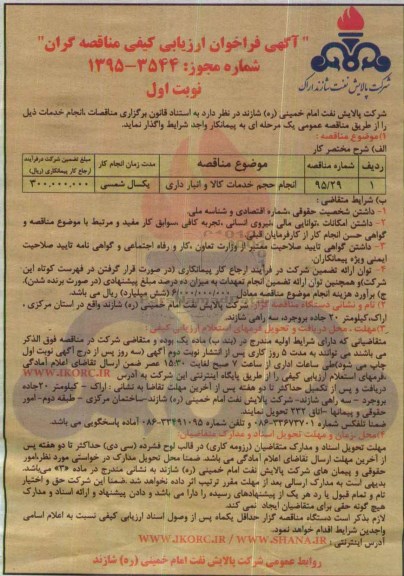 شرکت پالایش نفت شازند اراک
" آگهی فراخوان ارزیابی کیفی مناقصه گران"
شماره مجوز: ۳۵۴۴-۱۳۹۵
نوبت اول
شرکت پالایش نفت امام خمینی (ره) شازند در نظر دارد به استناد قانون برگزاری مناقصات ،انجام خدمات ذیل
را از طریق مناقصه عمومی یک مرحله ای به پیمانکار واجد شرایط واگذار نماید.
۱)موضوع مناقصه :
الف) شرح مختصر کار
ردیف شماره مناقصه موضوع مناقصه مدت زمان انجام کار مبلغ تضمین شرکت درفرآیند
ارجاع کار پیمانکاری (ریال)
۱ ۹۵/۲۹ انجام حجم خدمات کالا و انبار داری یکسال شمسی ۳۰۰.۰۰۰.۰۰۰
ب) شرایط متقاضی :
۱- داشتن شخصیت حقوقی ،شماره اقتصادی و شناسه ملی.
۲- داشتن امکانات ،توانایی مالی ،نیروی انسانی ،تجربه کافی ،سوابق کار مفید و مرتبط با موضوع مناقصه و
گواهی حسن انجام کار از کارفرمایان قبلی
۳- داشتن گواهی تایید صلاحیت معتبر از وزارت تعاون ،کار و رفاه اجتماعی و گواهی نامه تایید صلاحیت
ایمنی ویژه پیمانکاران.
۴- توان ارائه تضمین شرکت در فرآیند ارجاع کار پیمانکاری (در صورت قرار گرفتن در فهرست کوتاه این
شرکت)و همچنین توان ارائه تضمین انجام تعهدات به میزان ده درصد مبلغ پیشنهادی (در صورت برنده شدن).
ج) برآورد هزینه انجام موضوع مناقصه معادل (شش میلیارد) ریال می باشد.
۲) نام و نشانی دستگاه مناقصه گزار: شرکت پالایش نفت امام خمینی (ره) شازند واقع در استان مرکزی ،
اراک،کیلومتر ۲۰ جاده بروجرد، سه راهی شازند.
۳)مهلت ، محل دریافت و تحویل فرمهای استعلام ارزیابی کیفی :
متقاضیانی که دارای شرایط اولیه مندرج در (بند ب) ماده یک بوده و متقاضی شرکت در مناقصه فوق الذکر
می باشند می توانند به مدت ۵ روز کاری پس از انتشار نوبت دوم آگهی (سه روز پس از درج آگهی نوبت اول
چاپ می شود)طی ساعات اداری از ساعت ۷ صبح لغایت ۱۵:۳۰ عصر ضمن ارسال تقاضای اعلام آمادگی
فرمهای استعلام ارزیابی کیفی را از طریق پایگاه اینترنتی این شرکت به آدرس WWW.IKORC.IR
دریافت و پس از تکمیل حداکثر تا دو هفته پس از آخرین مهلت تقاضا به نشانی : اراک - کیلومتر ۲۰جاده
بروجرد - سه راهی شازند- شرکت پالایش نفت امام خمینی (ره) شازند-ساختمان مرکزی - طبقه دوم-امور
حقوقی و پیمانها -اتاق ۲۳۲ تحویل نمایند.
ضمنا تلفکس شماره ۳۳۶۷۳۷۰۱-۰۸۶ و تلفن شماره ۳۳۴۹۱۰۹۵-۰۸۶ آماده پاسخگویی می باشد.
۴)محل زمان و مهلت تحویل اسناد و مدارک متقاضیان:
مهلت تحویل اسناد و مدارک متقاضیان (رزومه کاری) در قالب لوح فشرده (سی دی) حداکثر تا دو هفته پس
از آخرین مهلت ارسال تقاضای اعلام آمادگی می باشد. ضمنا محل تحویل مدارک در خواستی مورد نظر،امور
حقوقی و پیمان های شرکت پالایش نفت امام خمینی (ره) شازند به نشانی مندرج در ماده «۳» می‌باشد.
بدیهی است به مدارک ارسالی بعد از مهلت مقرر ترتیب اثر داده نخواهد شد .ضمنا این شرکت حق و اختیار
تام و تمام قبول یا رد هر یک از پیشنهادهای رسیده را دارا می باشد و دادن پیشنهاد و ارائه اسناد و مدارک
هیچ گونه حقی برای متقاضیان ایجاد نمی کند.
لازم بذکر است دستگاه مناقصه گزار حداقل یکماه پس از وصول اسناد ارزیابی کیفی نسبت به اعلام اسامی
واجدین شرایط اقدام خواهد نمود.
آدرس اینترنتی : WWW.IKORC.IR / WWW.SHANA.IR
روابط عمومی شرکت پالایش نفت امام خمینی (ره) شازند